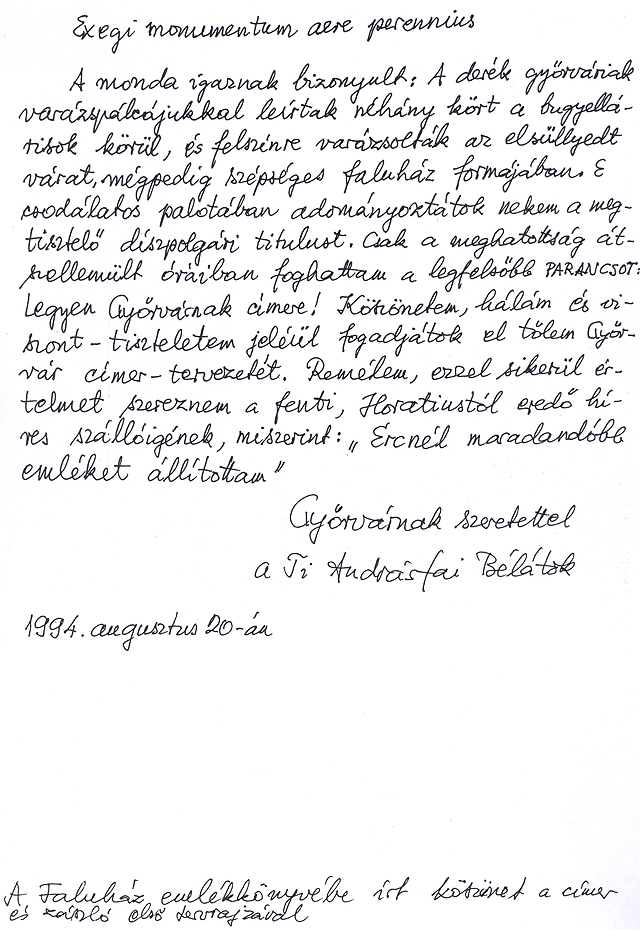 Exegi monumentum aere perennius
A monda igaznak bizonyult: A derék győrváriak
varázspálcájukkal leírtak néhány kört a bugyellá-
risok körül, és felszínre varázsolták az elsüllyedt
várat, mégpedig szépséges faluház formájában. E
csodálatos palotában adományoztátok nekem a meg-
tisztelő díszpolgári titulust. Csak a meghatottság át-
szellemült óráiban foghattam a legfelsőbb PARANCSOT:
Legyen Győrvárnak címere! Köszönetem, hálám és vi-
szont-tiszteletem jeléül fogadjátok el tőlem Győr-
vár címer-tervezetét. Remélem, ezzel sikerül ér-
telmet szereznem a fenti, Horatiustól eredő hí-
res szállóigének, miszerint: „Ércnél maradandóbb
emléket állítottam"
Győrvárnak szeretettel
a Ti Andrásfai Bélátok
1994. augusztus 20-án
A Faluház emlékkönyvébe írt köszönet a címer
és zászló első tervrajzával